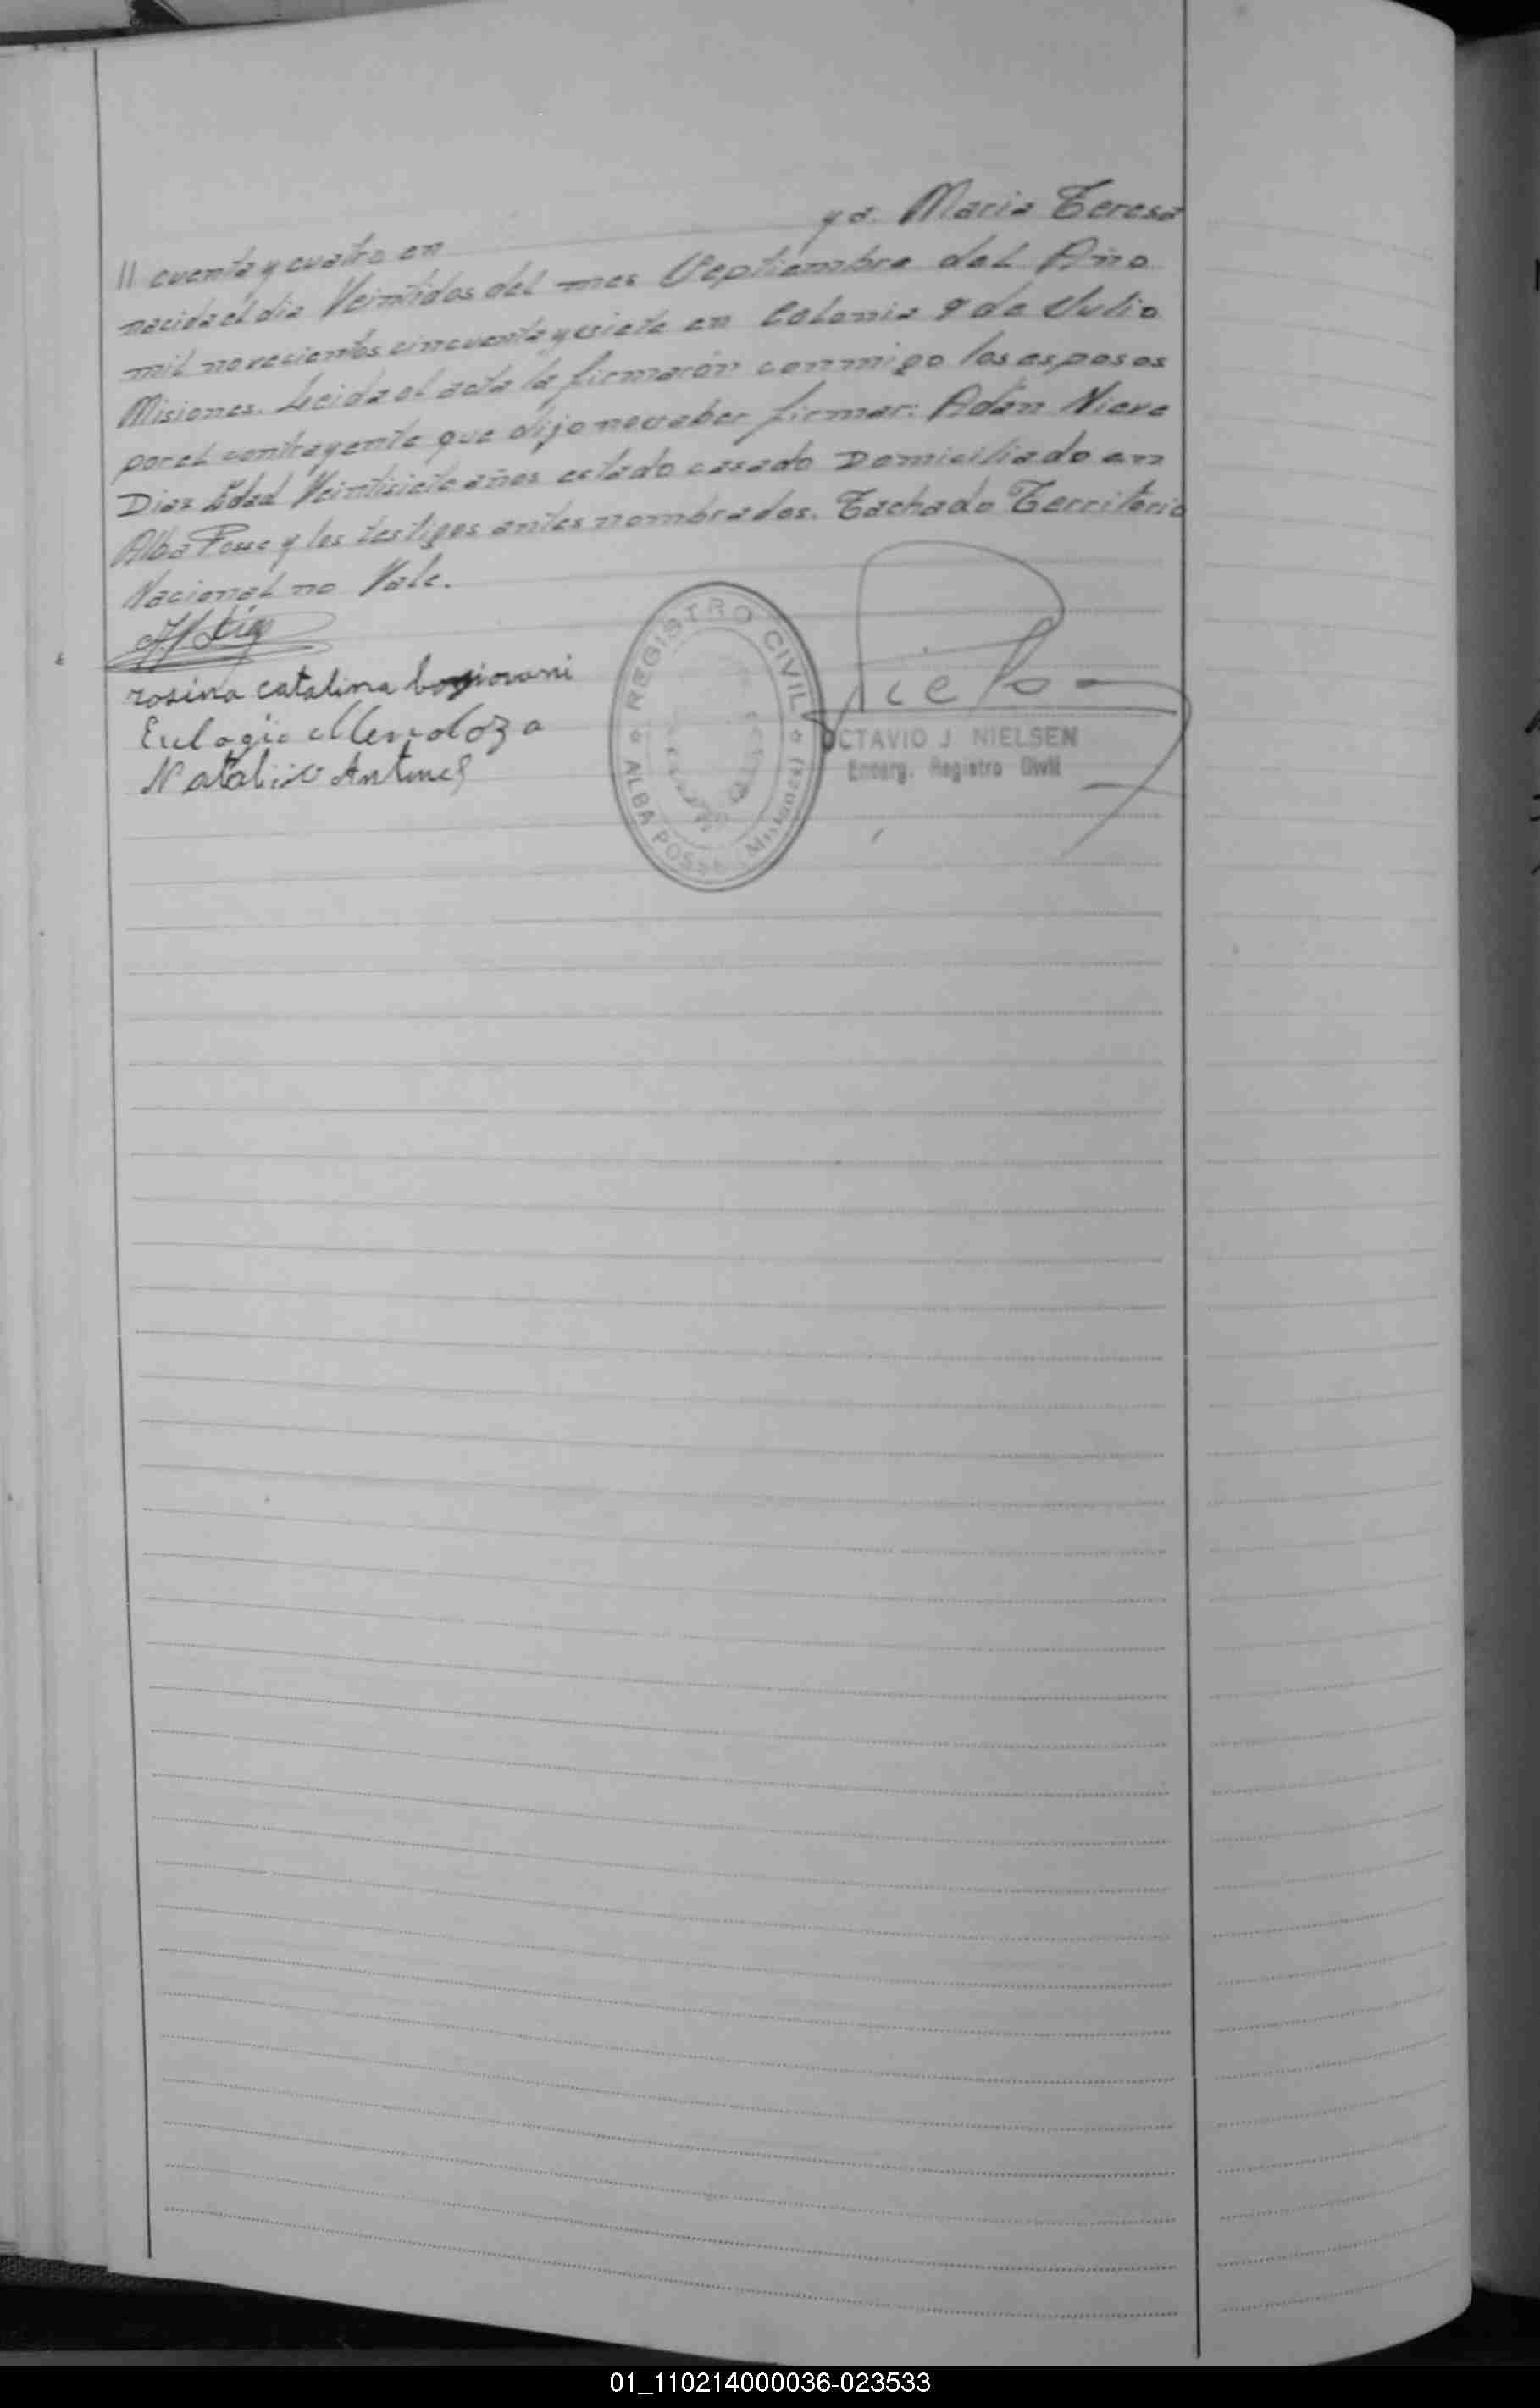 // cuenta y cuatro en y a. Maria Teresa
nacida el dia Veintidos del mes Septiembre del Año
mil novecientos cincuenta y siete en Colonia 9 de Julio
Misiones. Leida el acta la firmarón conmigo los esposos
por el contrayente que dijo no saber firmar: Adán Nieve
Diaz Edad Veintisiete años estado casado Domiciliado en
Alba Posse y los testigos antes nombrados. Tachado Territorio
Nacional no Vale.
rosina catalina
Eulogio Mendoza
Natalicio Antunes
REGISTRO CIVIL
ALBA POSSE (Misiones)
OCTAVIO J. NIELSEN
Encarg. Registro Civil
01_110214000036-023533